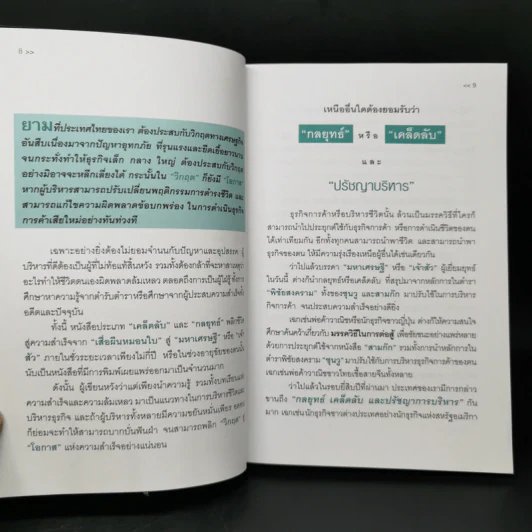 8 >>
ยามที่ประเทศไทยของเรา ต้องประสบกับวิกฤตทางเศรษฐกิจ
อันสืบเนื่องมาจากปัญหาอุทกภัย ที่รุนแรงและยืดเยื้อยาวนาน
จนกระทั่งทำให้ธุรกิจเล็ก กลาง ใหญ่ ต้องประสบกับวิกฤต
อย่างมิอาจจะหลีกเลี่ยงได้ กระนั้นใน "วิกฤต" ก็ยังมี "โอกาส"
หากผู้บริหารสามารถปรับเปลี่ยนพฤติกรรมการดำรงชีวิต และ
สามารถแก้ไขความผิดพลาดข้อบกพร่อง ในการดำเนินธุรกิจ
การค้าเสียใหม่อย่างทันท่วงที
เฉพาะอย่างยิ่งต้องไม่ยอมจำนนกับปัญหาและอุปสรรค
บริหารที่ดีต้องเป็นผู้ที่ไม่ท้อแท้สิ้นหวัง รวมทั้งต้องกล้าที่จะหาสาเหตุ
อะไรทำให้ชีวิตตนเองผิดพลาดล้มเหลว ตลอดถึงการเป็นผู้ใฝ่รู้
ศึกษาหาความรู้จากตำรับตำราหรือศึกษาจากผู้ประสบความสำเร็จ
อดีตและปัจจุบัน
ทั้งนี้ หนังสือประเภท "เคล็ดลับ" และ "กลยุทธ์" พลิกชีวิต
สู่ความสำเร็จจาก "เสื่อผืนหมอนใบ" สู่ "มหาเศรษฐี" หรือ "เจ้า
สัว" ภายในชั่วระยะเวลาเพียงไม่กี่ปี หรือในช่วงอายุขัยของตนนั้น
นับเป็นหนังสือที่มีการพิมพ์เผยแพร่ออกมาเป็นจำนวนมาก
ดังนั้น ผู้เขียนหวังว่าแต่เพียงนำความรู้ รวมทั้งบทเรียน
ความสำเร็จและความล้มเหลว มาเป็นแนวทางในการบริหารชีวิต
บริหารธุรกิจ และถ้าผู้บริหารทั้งหลายมีความขยันหมั่นเพียร
ก็ย่อมจะทำให้สามารถบากบั่นฟันฝ่า จนสามารถพลิก "วิกฤต" สู่
"โอกาส" แห่งความสำเร็จอย่างแน่นอน
<< 9
เหนืออื่นใดต้องยอมรับว่า
"กลยุทธ์" หรือ "เคล็ดลับ"
และ
"ปรัชญาบริหาร"
ธุรกิจการค้าหรือบริหารชีวิตนั้น ล้วนเป็นมรรควิธีที่ใครก็
สามารถนำไปประยุกต์ใช้กับธุรกิจการค้า หรือการดำเนินชีวิตของตน
ได้เท่าเทียมกัน อีกทั้งทุกคนสามารถนำพาชีวิต และสามารถนำพา
ธุรกิจของตน ให้มีความรุ่งเรืองเหนือผู้อื่นได้เช่นเดียวกัน
ว่าไปแล้วบรรดา "มหาเศรษฐี" หรือ "เจ้าสัว" ผู้เยี่ยมยุทธ์
ในวันนี้ ต่างก็นำกลยุทธ์หรือเคล็ดลับ ที่สรุปมาจากหลักการในตำรา
"พิชัยสงคราม" ทั้งของซุนวู และสามก๊ก มาปรับใช้ในการบริหาร
ธุรกิจการค้า จนประสบความสำเร็จอย่างดียิ่ง
เฉกเช่นพ่อค้าวาณิชหรือนักธุรกิจชาวญี่ปุ่น ต่างก็ให้ความสนใจ
ศึกษาค้นคว้าเกี่ยวกับ มรรควิธีในการต่อสู้ เพื่อชัยชนะอย่างแพร่หลาย
ด้วยการประยุกต์ใช้จากหนังสือ "สามก๊ก" รวมทั้งการนำหลักการใน
ตำราพิชัยสงคราม "ซุนวู" มาปรับใช้กับการบริหารธุรกิจการค้าของตน
เฉกเช่นพ่อค้าวาณิชชาวไทยเชื้อสายจีนทั้งหลาย
ว่าไปแล้วในรอบยี่สิบปีที่ผ่านมา ประเทศของเรามีการกล่าว
ขานถึง "กลยุทธ์ เคล็ดลับ และปรัชญาการบริหาร" กัน
มาก เฉกเช่นนักธุรกิจชาวต่างประเทศอย่างนักธุรกิจแห่งสหรัฐอเมริกา